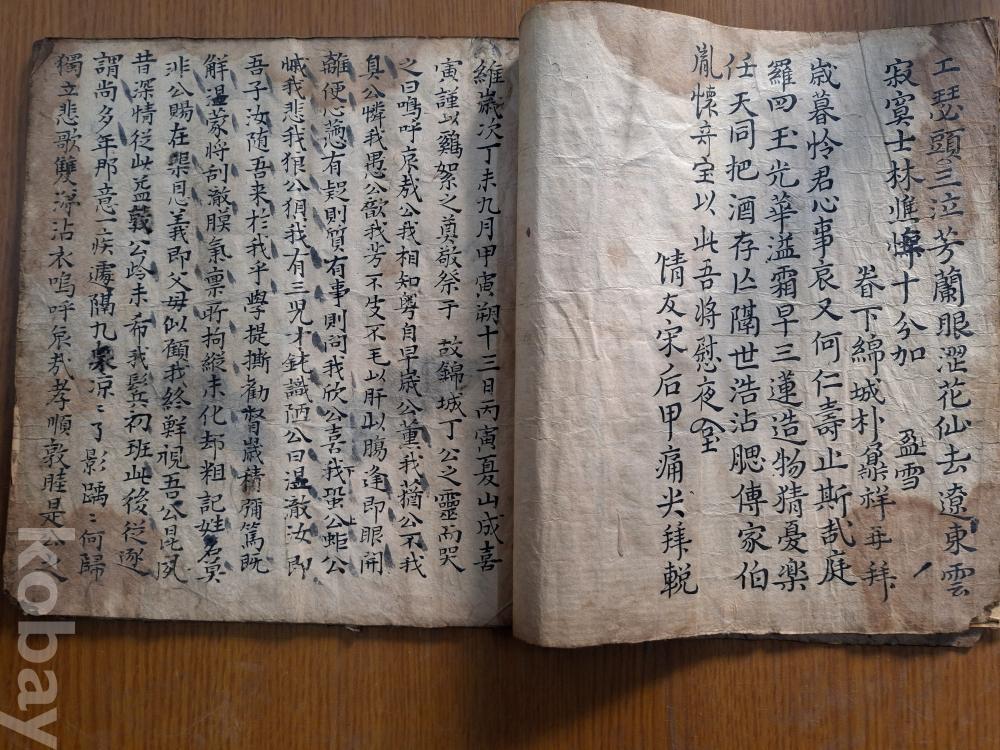 工瑟頭三泣芳蘭眼澀花仙去遼東雲
寂寞士林惟悴十分加 盈雪
眷下綿城朴鼎祥再拜
歲暮怜君心事哀又何仁壽止斯哉庭
羅四玉光華溢霜早三蓮造物猜憂樂
任天同把酒存亡隔世浩沾腮傳家伯
胤懷奇宝以此吾將慰夜臺
情友宋后甲痛哭拜輓
維歲次丁未九月甲寅朔十三日丙寅夏山成喜
寅謹以鷄絮之奠敬祭于 故錦城丁公之靈而哭
之曰嗚呼哀哉公我相知粤自早歲公薰我蕕公不我
真公憐我愚公歆我芳不皮不毛以肝以膓逢即眼開
離便心懸有疑則質有事則問我欣公喜我蛩公蚷公
慽我悲我狼公狽我有三兒才鈍識陋公曰温澈汝即
吾子汝随吾来於我乎學提撕勸督歲積彌篤既
解温蒙將刮澈膜氣禀所拘縱未化却粗記姓名莫
非公賜在渠恩義即父母似顧我終鮮視吾公昆夙
昔深情從此益義公岭未希我鬂初班此後從逐
謂尚多年那意一疾遽隔九泉凉凉了影踽踽何歸
獨立悲歌雙涕沾衣嗚呼哀哉孝順敦睦是公之
kobay